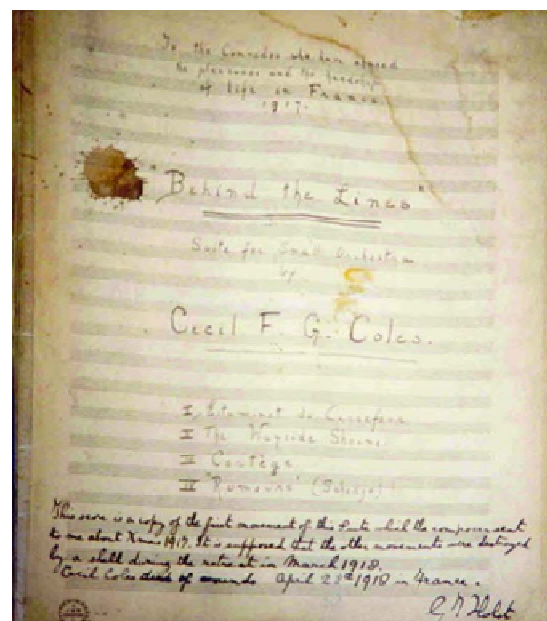 To the Comrades who have shared
the pleasures and the hardships
of life in France
1917.
"Behind the Lines"
Suite for Small Orchestra
by
Cecil F. G. Coles.
I Estaminet du Carrefour
II The Wayside Shrine
III Cortège
IV "Rumours"
This score is a copy of the first movement of this Suite which the composer sent
to me about Xmas 1917. It is supposed that the other movements were destroyed
by a shell during the retreat in March 1918.
Cecil Coles died of wounds April 1918 in France.